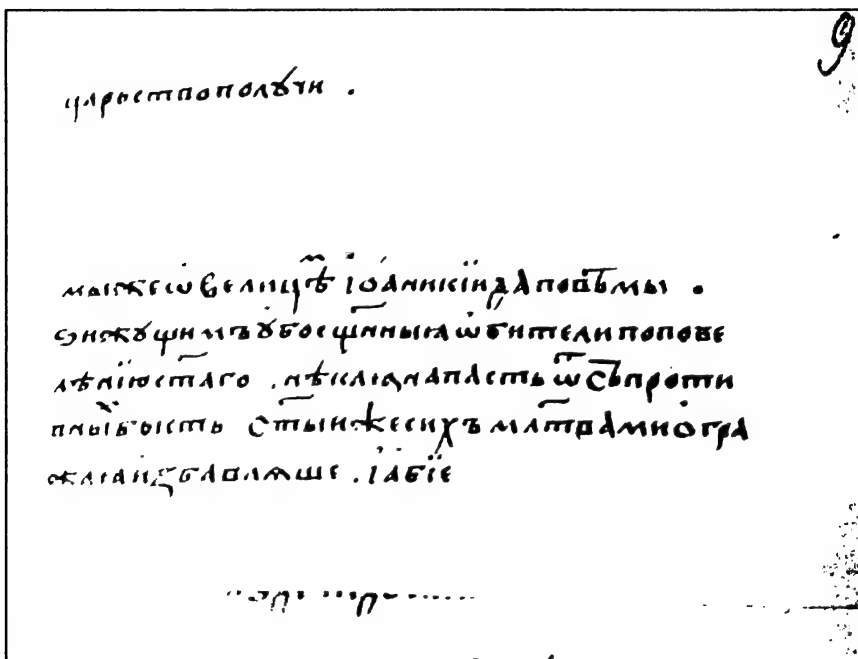 9
царьство полꙋчи .
мыже ѡ велицѣмъ іѡ́анникїи да повѣмы .
зижꙋщимъ ꙋбо сщ҃нныꙗ ѡбители по пове
лѣнїю ст҃аго . нѣкаꙗ напасть ѿ съпроти
вных быⷭ҇ть ст҃ый же сихъ мл҃твами ѻгра
жаꙗ избавлѧше . і абїе